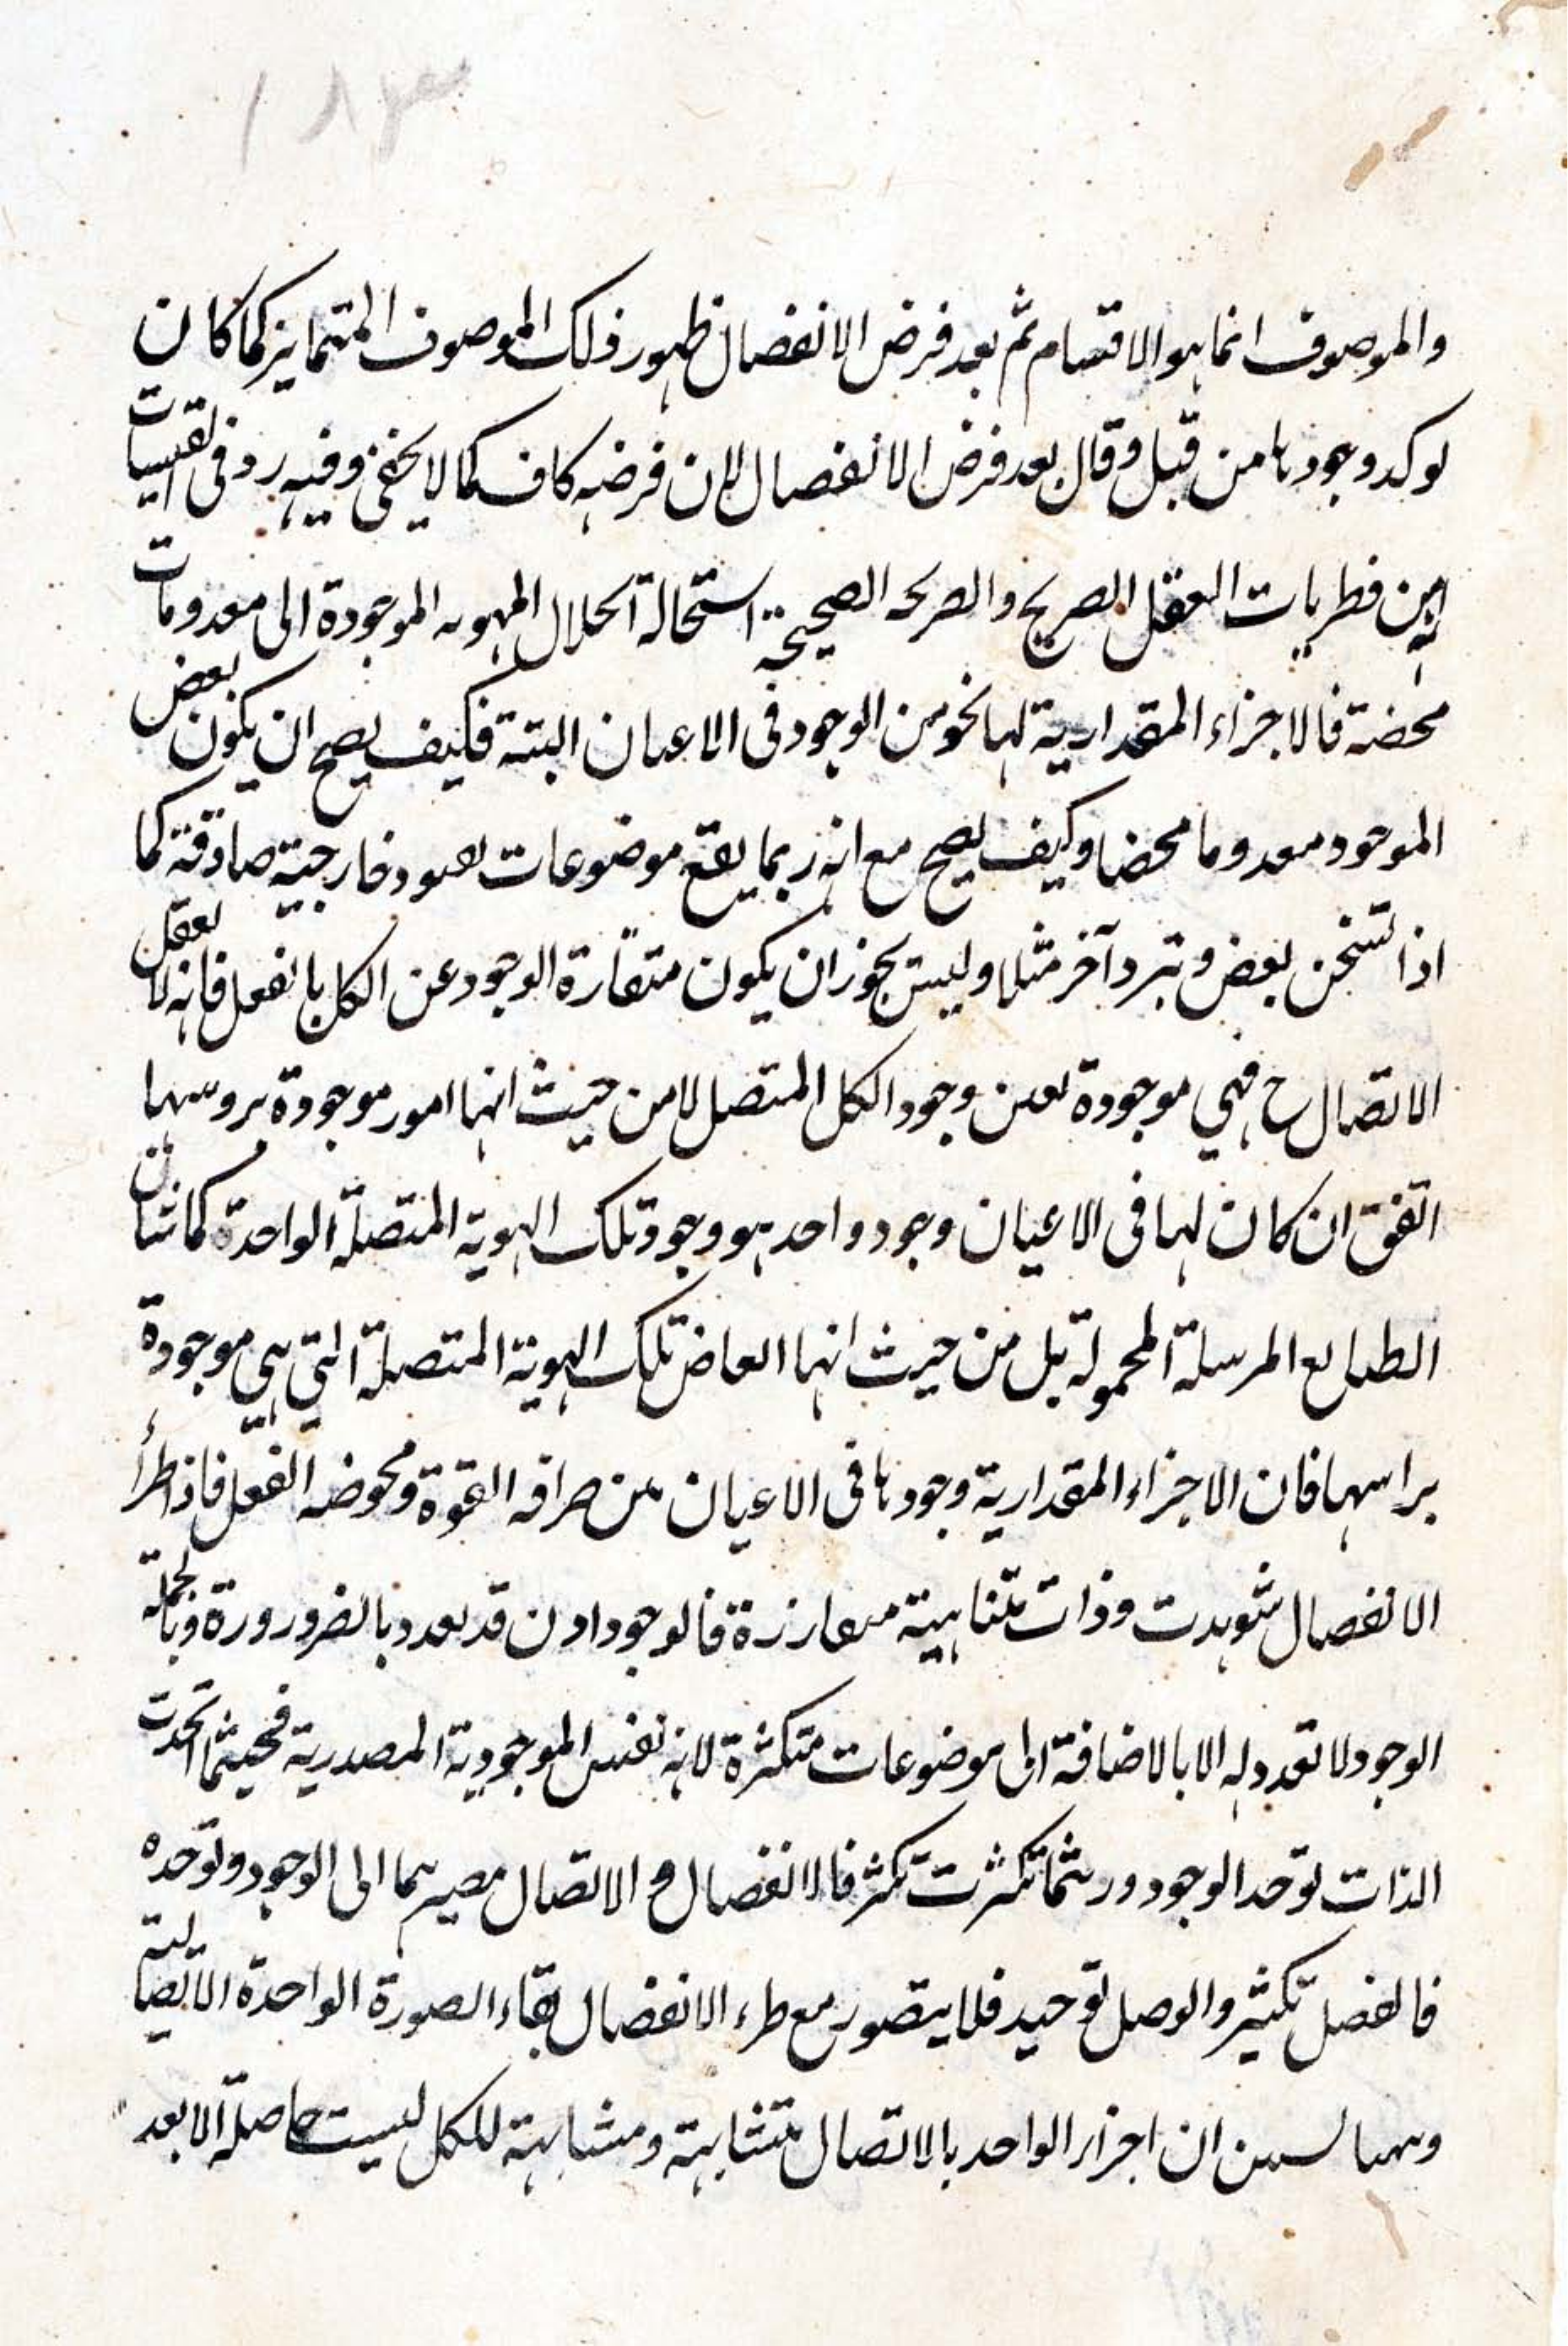 ١٨٣
والموصوف انما هو الاقتسام ثم بعد فرض الانفصال ظهور ذلك الموصوف المتمايز كما كان
لوكد وجودها من قبل وقال بعد فرض الانفصال لان فرضه كاف كما لا يخفى وفيه رد فى القبسات
من فطريات العقل الصريح والصريحه الصحيحة استحالة انحلال الهويه الموجودة الى معدومات
محضة فالاجزاء المقدارية لها نحو من الوجود فى الاعيان البتة فكيف يصح ان يكون بعض
الموجود معدوما محضا وكيف يصح مع انه ربما يقع موضوعات لعقود خارجية صادقة كما
اذا تسخن بعض وتبرد آخر مثلا وليس يجوز ان يكون متغايرة الوجود عن الكل بالفعل فانه لا يعقل
الاتصال ح فهي موجودة بعين وجود الكل المتصل لا من حيث انها امور موجودة بروسها
اتفق ان كان لها فى الاعيان وجود واحد هو وجود تلك الهوية المتصلة الواحدة كما شان
الطبايع المرسلة المحمولة بل من حيث انها ابعاض تلك الهوية المتصلة التي هي موجودة
براسها فان الاجزاء المقدارية وجودها فى الاعيان بين صرافه القوة ومحوضه الفعل فاذا طرأ
الانفصال شوهدت وذات متناهية متفارزة فالوجود اذن قد تعدد بالضرورة وبالجملة
الوجود لا تعدد له الا بالاضافة الى موضوعات متكثرة لانه نفس الموجودية المصدرية فحيثما اتحدت
الذات توحد الوجود وريثما تكثرت تكثر فالانفصال و الاتصال مصيرهما الى الوجود وتوحده
فالفصل تكثير والوصل توحيد فلا يتصور مع طرء الانفصال بقاء الصورة الواحدة الاتصالية
ان اجزاء الواحد بالاتصال متشابهة ومشابهة للكل ليست حاصلة الا بعد